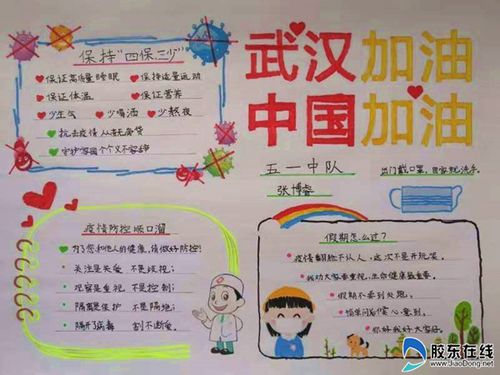 保持“四保三少”
保证高质量睡眠 保持适量运动
保证体温 保证营养
少生气 少喝酒 少熬夜
抗击疫情从我
守护家国个个义不容辞
武汉加油
中国加油
五一中队
张博睿
出门戴口罩，回家就洗手。
疫情防控顺口溜
为了您和他人的健康，请做好防控！
关注是关爱 不是歧视；
观察是重视 不是控制；
隔离是保护 不是隔绝；
隔开了病毒 割不断爱。
假期怎么过？
疫情翻脸不认人，这次不是开玩笑。
我劝大家要重视，生命健康最重要。
假期不要到处跑，
你好我好大家好。
胶东在线
www.JiaoDong.net